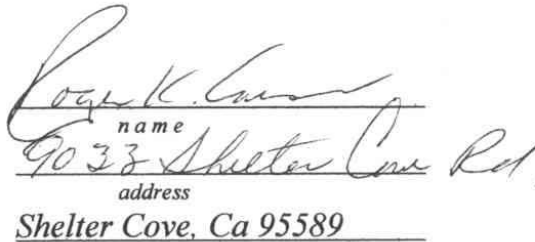 Roger K.
name
9033 Shelter Cove Rd
address
Shelter Cove, Ca 95589